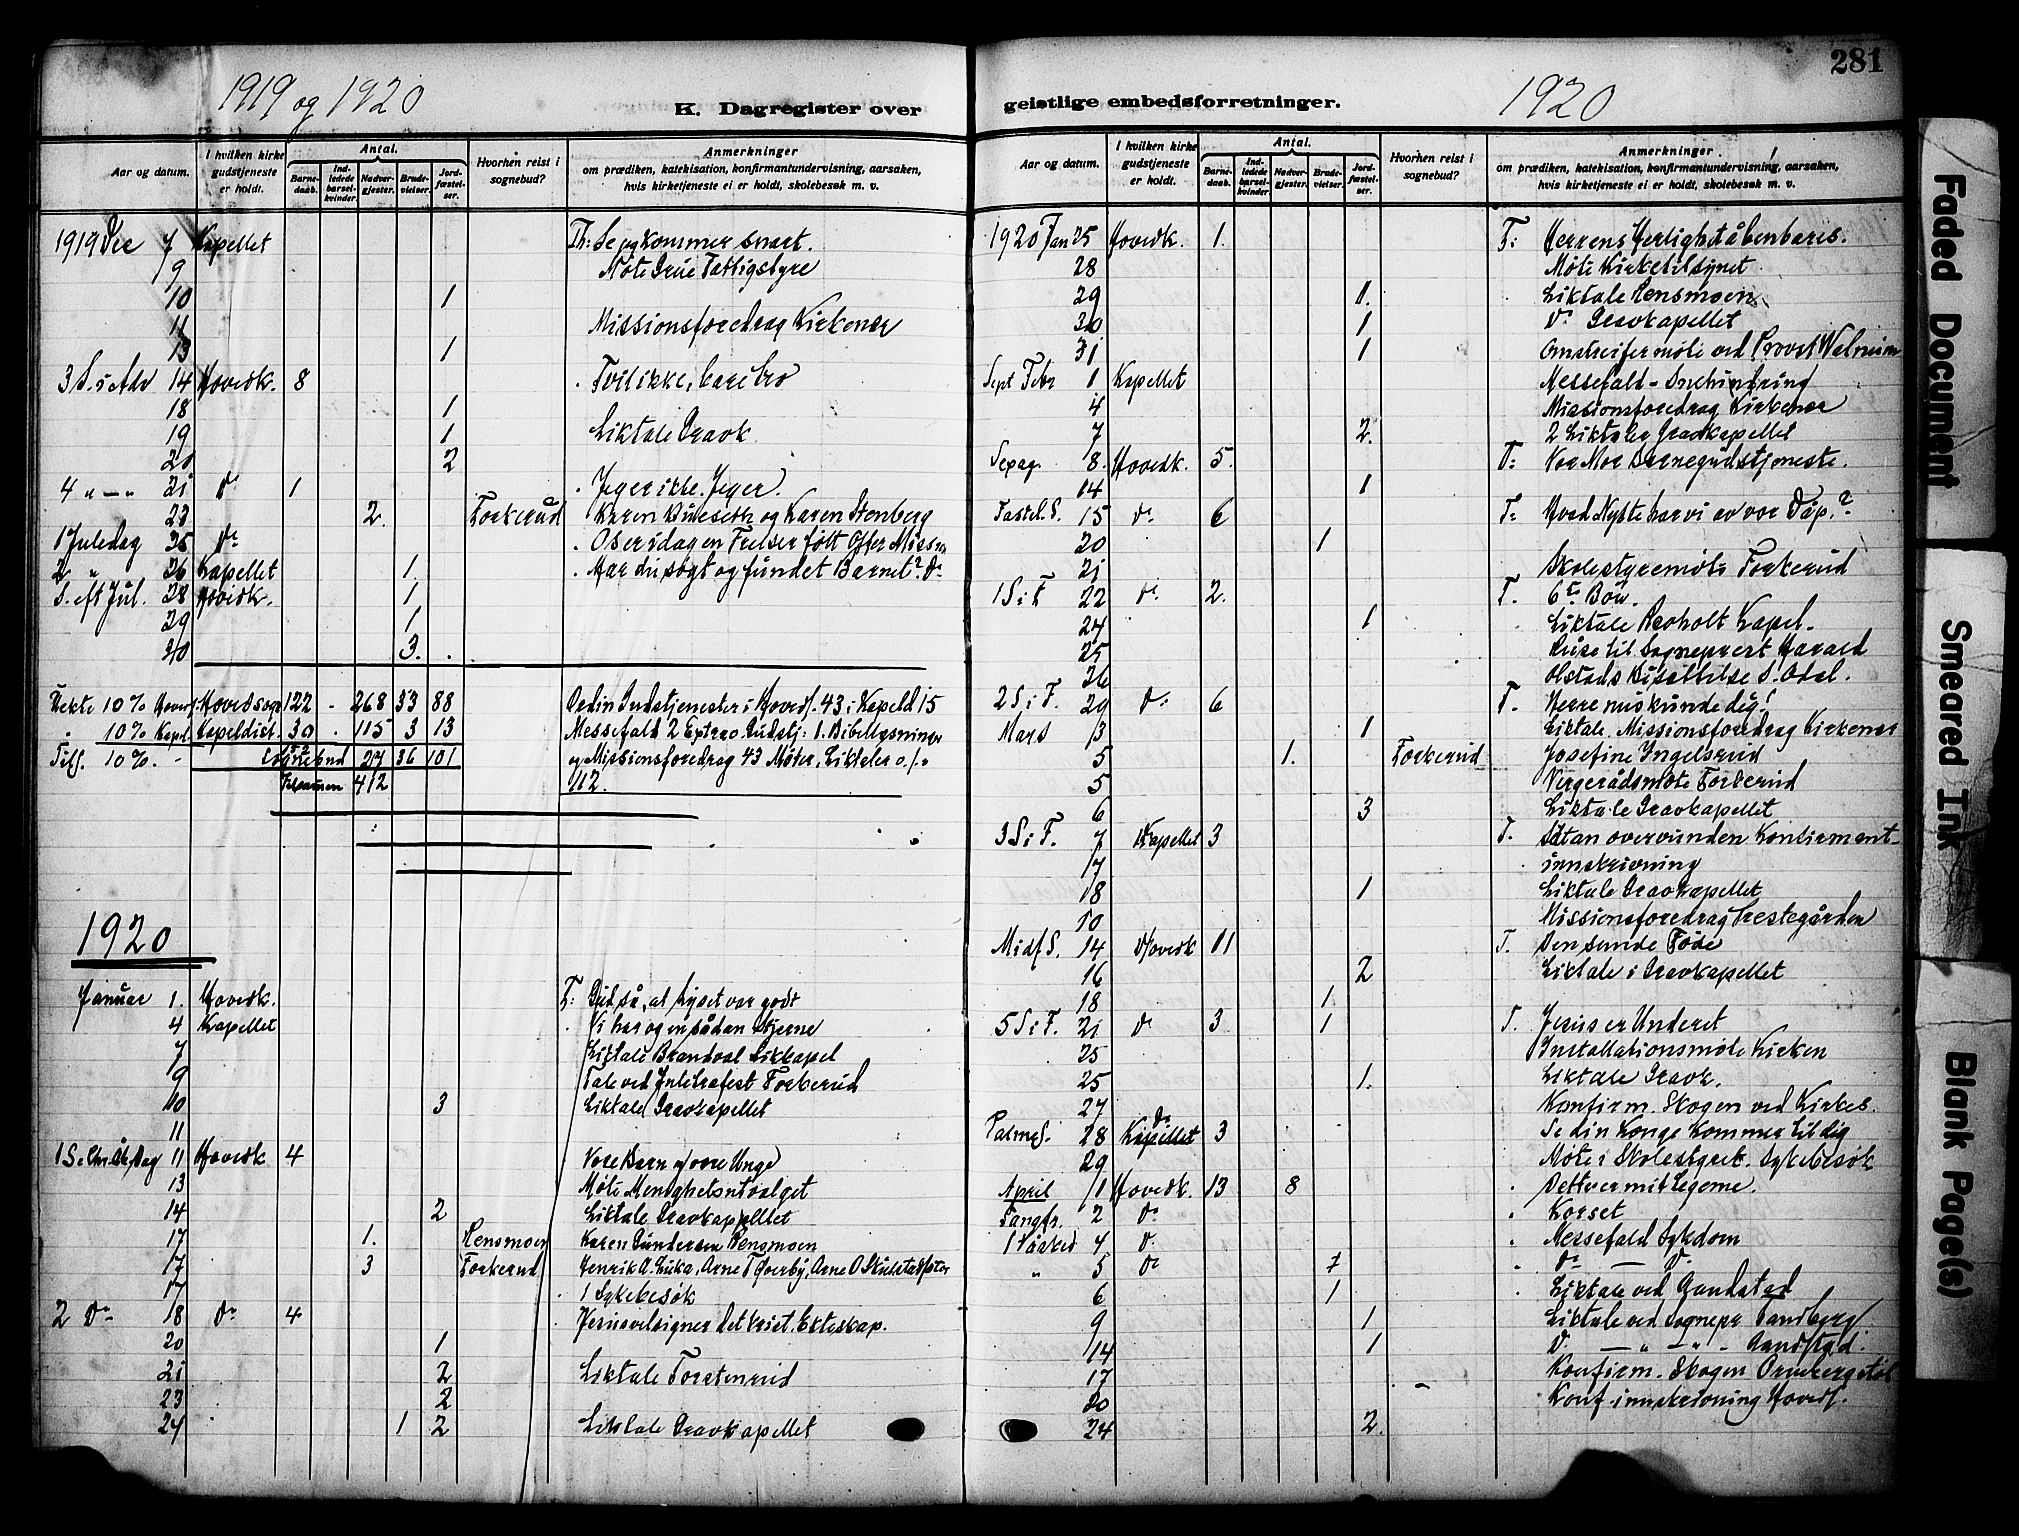 1919 og 1920
K. Dagregister over
Aar og datum.
I hvilken kirke gudstjeneste er holdt.
Antal.
Barnedaab.
Indledede barselkvinder.
Nadvergjester.
Brudevielser.
Jordfæstelser.
Hvorhen reist i sognebud?
Anmerkninger
om prædiken, katekisation, konfirmantundervisning, aarsaken,
hvis kirketjeneste ei er holdt, skolebesøk m. v.
1919 Dec 7 Kapellet Th: Se jeg kommer snart.
9 Møte Grue Fattigstyre
10 1
11 Missionsforedrag Kirkenær
13 1
3 S. i Adv 14 Hovedk. 8 Tvil ikke, bare tro
18 1
19 1 Liktale Gravk.
20 2
4 " — " 21 Do 1 Jeg er ikke. Jeg er.
23 2. Forkerud Karen og Karen Stenberg
1 Juledag 25 Do Os er idag en Frelser født Offer Mission
2 " 26 Kapellet 1. Har du søgt og fundet Barnet? Do
S. eft Jul. 28 Hovedk. 1
29 1
30 3.
Uekte 10% Hoveds. Hovedsogn 122 - 268 33 88 Ordin Gudstjenester i Hoveds. 43 i Kapeld 15
" 10% Kapel. Kapeldist. 30 - 115 3 13 Messefald 2 Extrao. Gudstj: 1. Bibellæsninger
Tils. 10%. - Sognebud 29 36 101 og Missionsforedrag 43 Møter, Liktaler o. s. v.
Tilsammen 412 112.
1920
Januar 1. Hovedk. T: Gud så, at lyset var godt
4 Kapellet Vi har og en sådan stjerne
7 Liktale Brandval Likkapel
9 Tale ved Juletrefest Forkerud
10 3 Liktale Gravkapellet
11
1 S. e. Hel 3 K. Dag 11 Hovedk 4 Vore Barn og vore Unge
13 Møte Menighetsutvalget
14 2 Liktale Gravkapellet
17 1. Rensmoen Karen Gundersen Rensmoen
17 3 Forkerud Henrik A. Luka, Arne T Øverby, Arne O
17 1 Sykebesøk
2 Do 18 Do 4 Jesus velsigner det krist. Ekteskap.
20 1
21 2 Liktale Torstenrud
23 2
24 1 2 Liktale Gravkapellet
281
geistlige embedsforretninger.
1920
Aar og datum.
I hvilken kirke gudstjeneste er holdt.
Antal.
Barnedaab.
Indledede barselkvinder.
Nadvergjester.
Brudevielser.
Jordfæstelser.
Hvorhen reist i sognebud?
Anmerkninger
om prædiken, katekisation, konfirmantundervisning, aarsaken,
hvis kirketjeneste ei er holdt, skolebesøk m. v.
1920 Jan 25 Hovedk. 1. T: Herrens Herlighet åbenbares.
28 Møte Kirketilsynet
29 1. Liktale Rensmoen
30 1 Do Gravkapellet
31 1 Omstreifermøte ved Provst Walnum
Sept Febr 1 Kapellet Messefald - Snehindring
4 Missionsforedrag Kirkenær
7 2. 2 Liktaler Gravkapellet
Sexag. 8. Hovedk. 5. T: Barnegudstjeneste.
14 1
Fastel. S. 15 Do 6 T: Hvad Nytte har vi av vor Dåp?
20 1
21 Skolestyremøte Forkerud
1 S i F 22 Do 2. T. 6te Bøn.
24 1 Liktale Kapel.
25 Reise til Sogneprest Harald
26 Olstads Bisættelse S. Odal.
2 S i F. 29 Do 6 T. Herre miskunde dig!
Mars 3 1 Liktale. Missionsforedrag Kirkenær
5 1. Forkerud Josefine Ingelsrud
5 Vergerådsmøte Forkerud
6 3 Liktale Gravkapellet
3 S i F. 7 Kapellet 3 T. Satan overvunden Konfirmant-
17 innskrivning
18 1 Liktale Gravkapellet
10 Missionsforedrag Prestegården
Midf S. 14 Hovedk 11 T. Den sunde Føde
16 2 Liktale i Gravkapellet
18 1.
5 S i F. 21 Do 3 1 T. Jesus er Underet
25 Installationsmøte Kirken
25 1. Liktale Gravk.
27 Konfirm. Skogen ved Kirkes.
Palmes. 28 Do Kapellet 3 Se din Konge kommer til dig
29 Møte i Skolestyret. Sykebesøk
April 1 Hovedk. 13 8 Dette er mit Legeme.
Langfr. 2 Do Korset
1 Påsked 4 Do Messefald Sykdom
" 5 Do 7 Do — Do
6 1 Liktale ved Randstad
9 1 Liktale ved Sognepr Sandberg
14 1 Do — " — " - Randstad.
17 Konfirm. Skogen
20 Konf. innskrivning Hoveds.
24 2.
Faded Document
Smeared Ink
Blank Page(s)